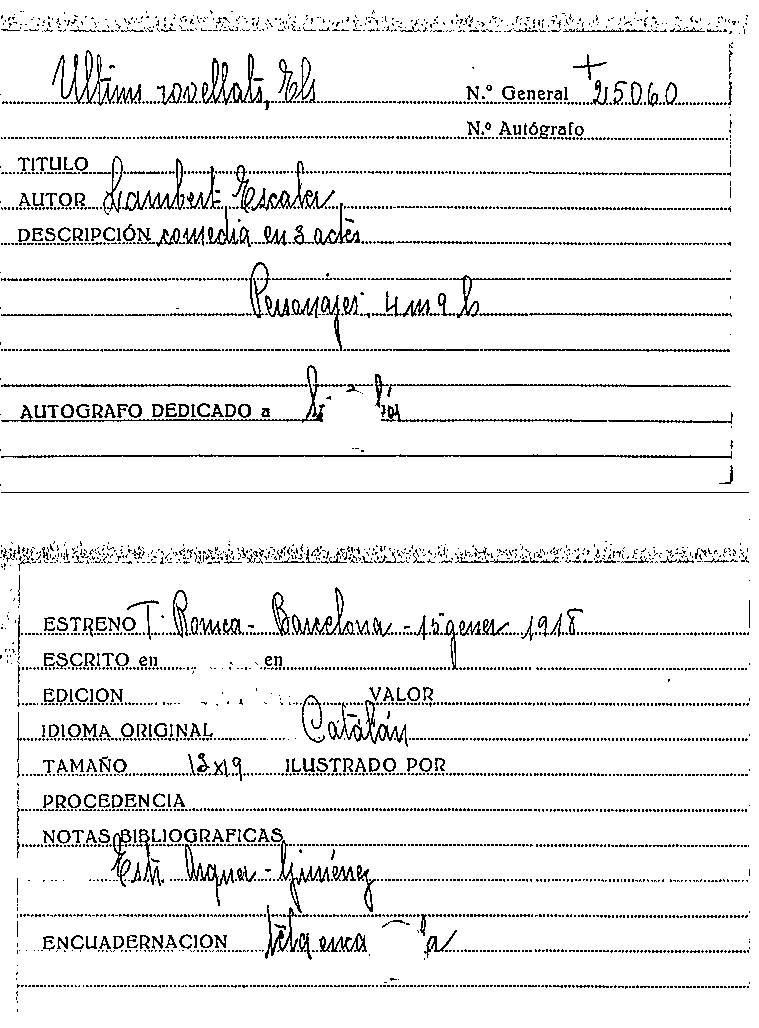 Ultims rovellats, Els
N.º General 25060
N.º Autógrafo
TITULO
AUTOR Lambert Escaler
DESCRIPCIÓN comedia en 3 actes
Personajes: 4 m 9 h
AUTOGRAFO DEDICADO a
ESTRENO T. Romea - Barcelona - 15 gener 1918
ESCRITO en en
EDICION VALOR
IDIOMA ORIGINAL Catalán
TAMAÑO 13x19 ILUSTRADO POR
PROCEDENCIA
NOTAS BIBLIOGRAFICAS
Estr. Arquer - Giménez
ENCUADERNACION